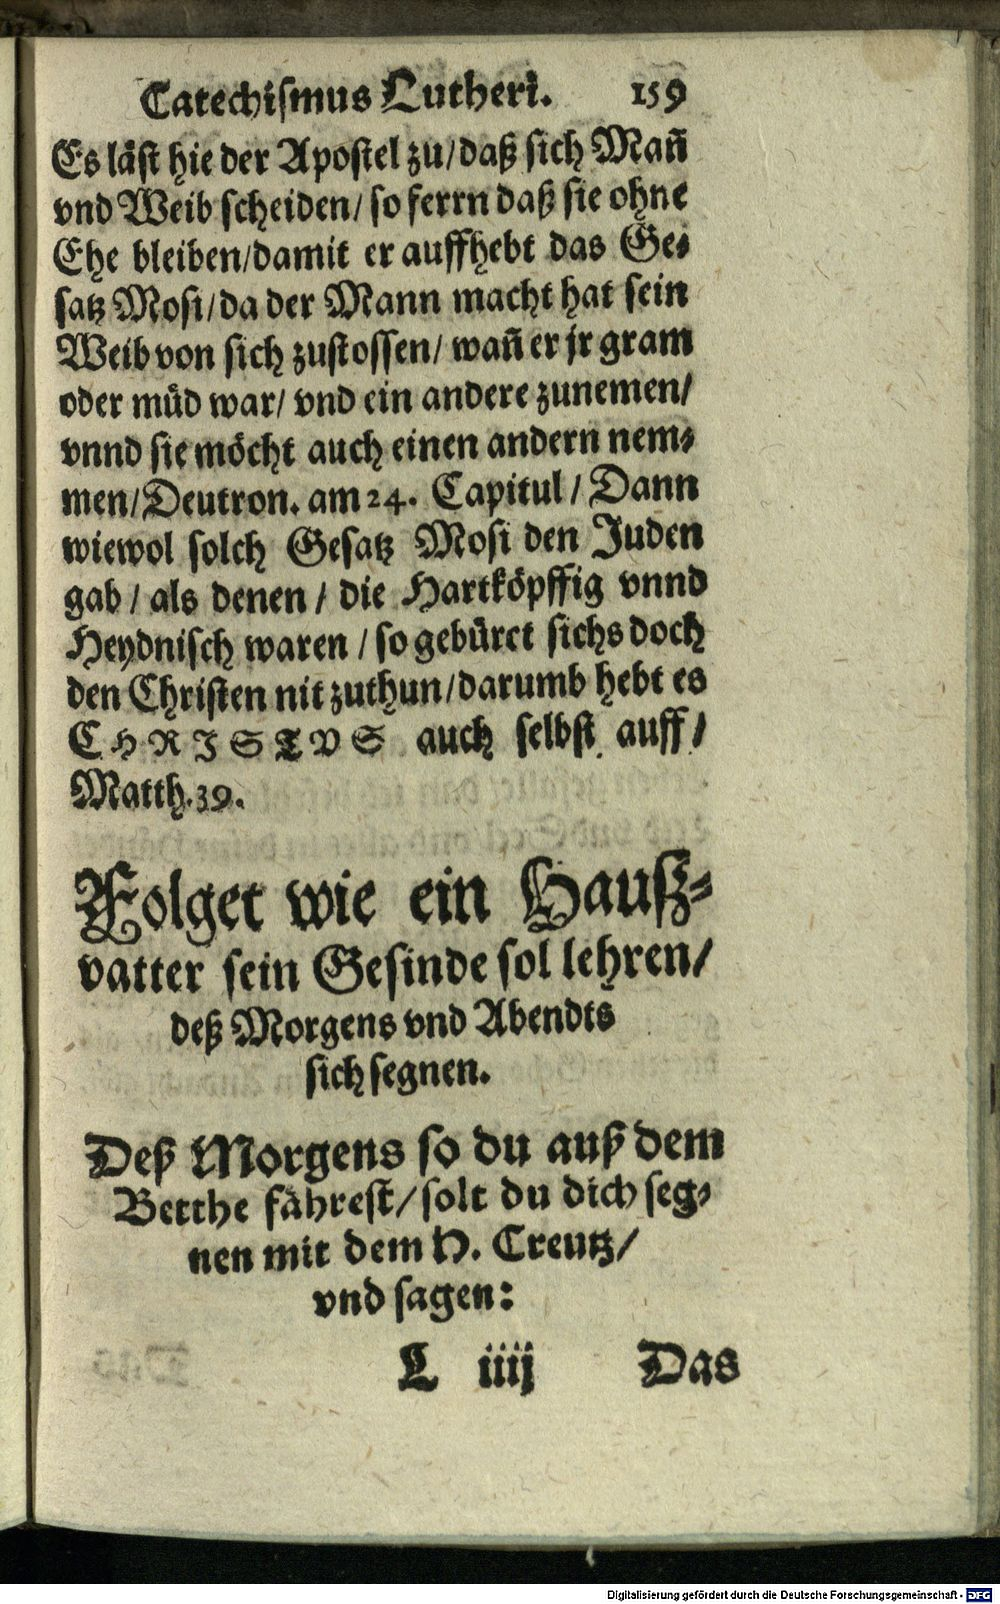 Catechismus Lutheri. 159
Es läst hie der Apostel zu/daß sich Mañ
vnd Weib scheiden/ so ferrn daß sie ohne
Ehe bleiben/damit er auffhebt das Ge-
satz Mosi/da der Mann macht hat sein
Weib von sich zustossen/ wañ er jr gram
oder müd war/ vnd ein andere zunemen/
vnnd sie möcht auch einen andern nem-
men/Deutron. am 24. Capitul/ Dann
wiewol solch Gesatz Mosi den Juden
gab/ als denen/ die Hartköpffig vnnd
Heydnisch waren/ so gebüret sichs doch
den Christen nit zuthun/darumb hebt es
CHRISTVS auch selbst auff/
Matth.39.
Folget wie ein Hausz-
vatter sein Gesinde sol lehren/
deß Morgens vnd Abendts
sich segnen.
Deß Morgens so du auß dem
Betthe fährest/solt du dich seg-
nen mit dem H. Creutz/
vnd sagen:
L iiij Das
Digitalisierung gefördert durch die Deutsche Forschungsgemeinschaft - DFG